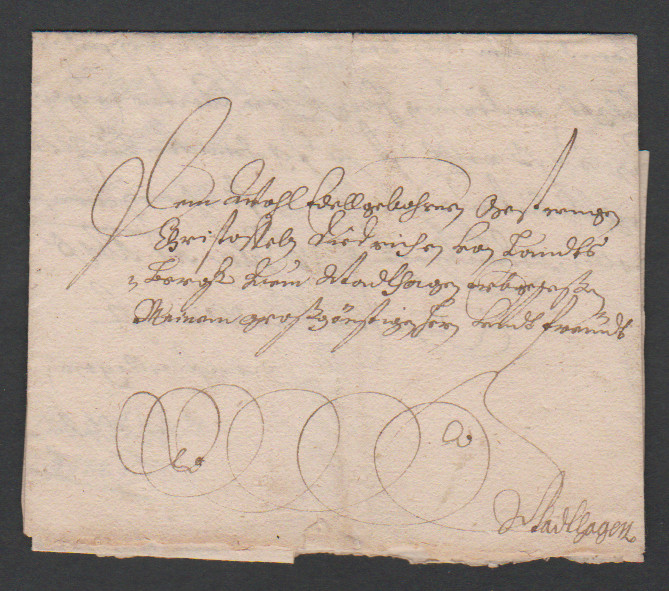 Dem Wohl Edellgebohrnen Gestrengen
Christoffeln Diedrichen von Landts
Bergk Zum Stadthagen
Meinem großgünstigen Herrn freundt
Stadthagen